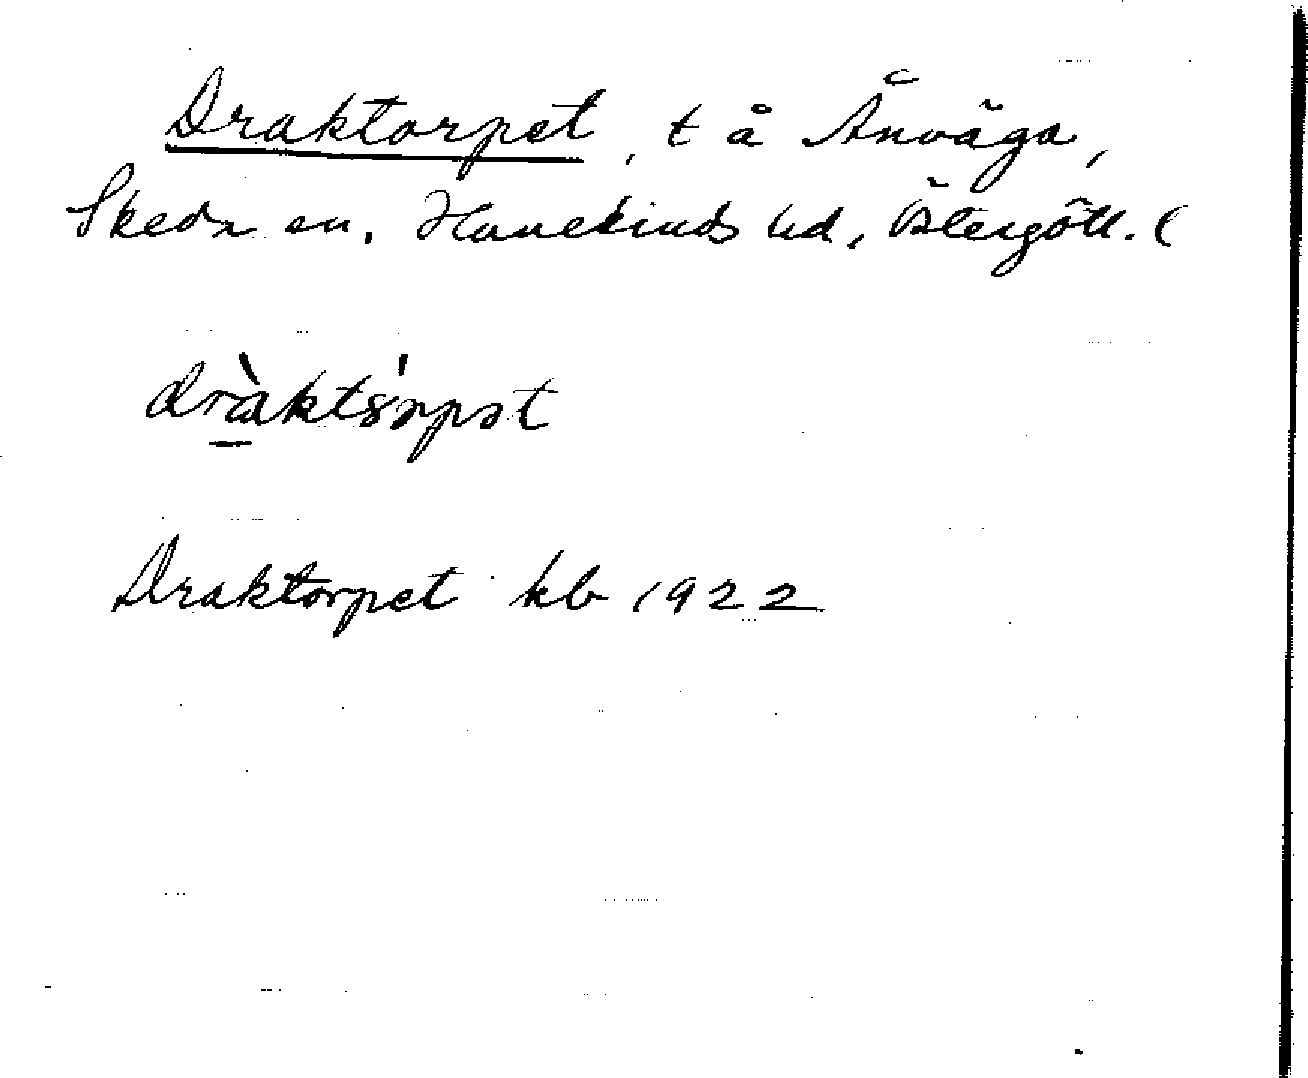 Draktorpet, t å Ånväga,
Skeda sn. Hanekinds hd, Östergötl. (
dràktórpət
Draktorpet kb 1922